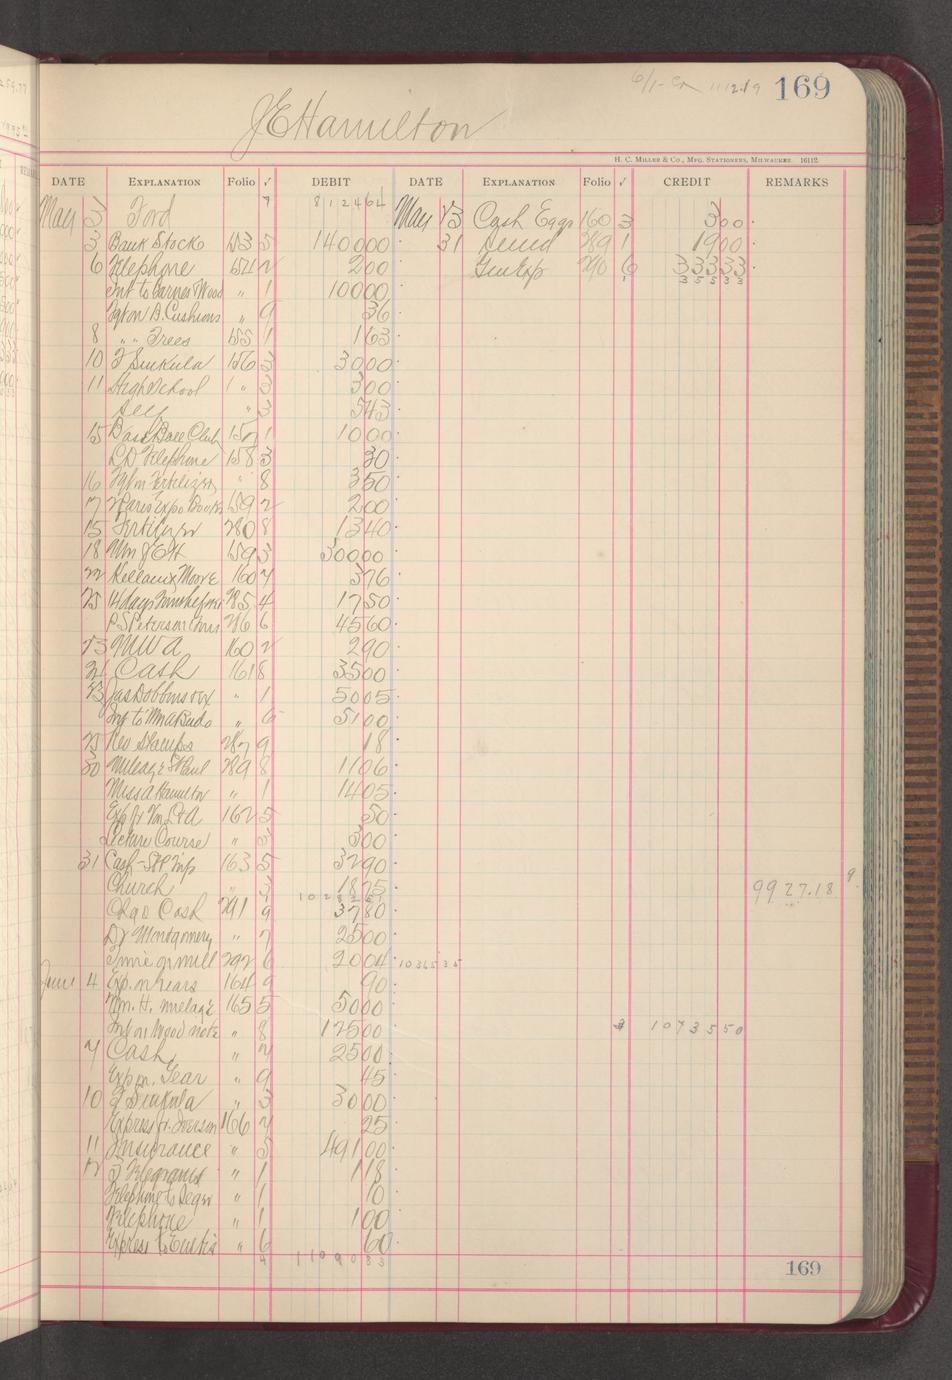 169
6/1- Cr 1112.19
J E Hamilton
H. C. Miller & Co., Mfg. Stationers, Milwaukee. 16112
DATE EXPLANATION Folio √ DEBIT DATE EXPLANATION Folio √ CREDIT REMARKS
May 3 Ford 7 812464 May 23 Cash Eggs 160 3 300
3 Bank Stock 153 5 140000 31 289 1 1900
6 Telephone 154 2 200 Gen Exp 290 6 33333
Int to Barnes Wood " 1 10000 35533
Fgt on B. Cushions " 9 36
8 " " Trees 155 1 163
10 F Sinkula 156 3 3000
11 High School 1 " 3 300
Self " 3 543
15 Base Ball Club 157 1 1000
L D Telephone 158 3 30
16 Fgt on Fertilizer " 8 350
17 Expo Books 159 2 200
15 Fertilizer 280 8 1340
18 Wm J & H 159 3 30000
22 Moore 160 7 376
25 14 days 285 4 1750
P. S. Peterson 286 6 4560
23 MWA 160 2 290
24 Cash 161 8 3500
23 Jas Dobbins " 1 5005
Int to " 6 5100
25 Rev Stamps 287 9 18
30 Mileage St Paul 289 8 1106
Miss A Hamilton " 1 1405
Exp fr 162 5 50
Lecture Course " 3 300
31 Cash - 163 5 3290
Church " 3 1875 9927.18 9
Chgo Cash 291 9 3780
Dr Montgomery " 7 2500
on mill 292 6 2004 1036535
June 4 Exp. on pears 164 9 90
Wm. H. mileage 165 5 5000
Int on Wood note " 8 12500 1073550
7 Cash " 7 2500
Exp on. Gear " 9 45
10 F Sinkula " 3 3000
Express fr. Iverson 166 7 25
11 Insurance " 5 49100
12 3 Telegrams " 1 118
Telephone to " 1 10
Telephone " 1 100
Express " 6 60
4 1109083
169